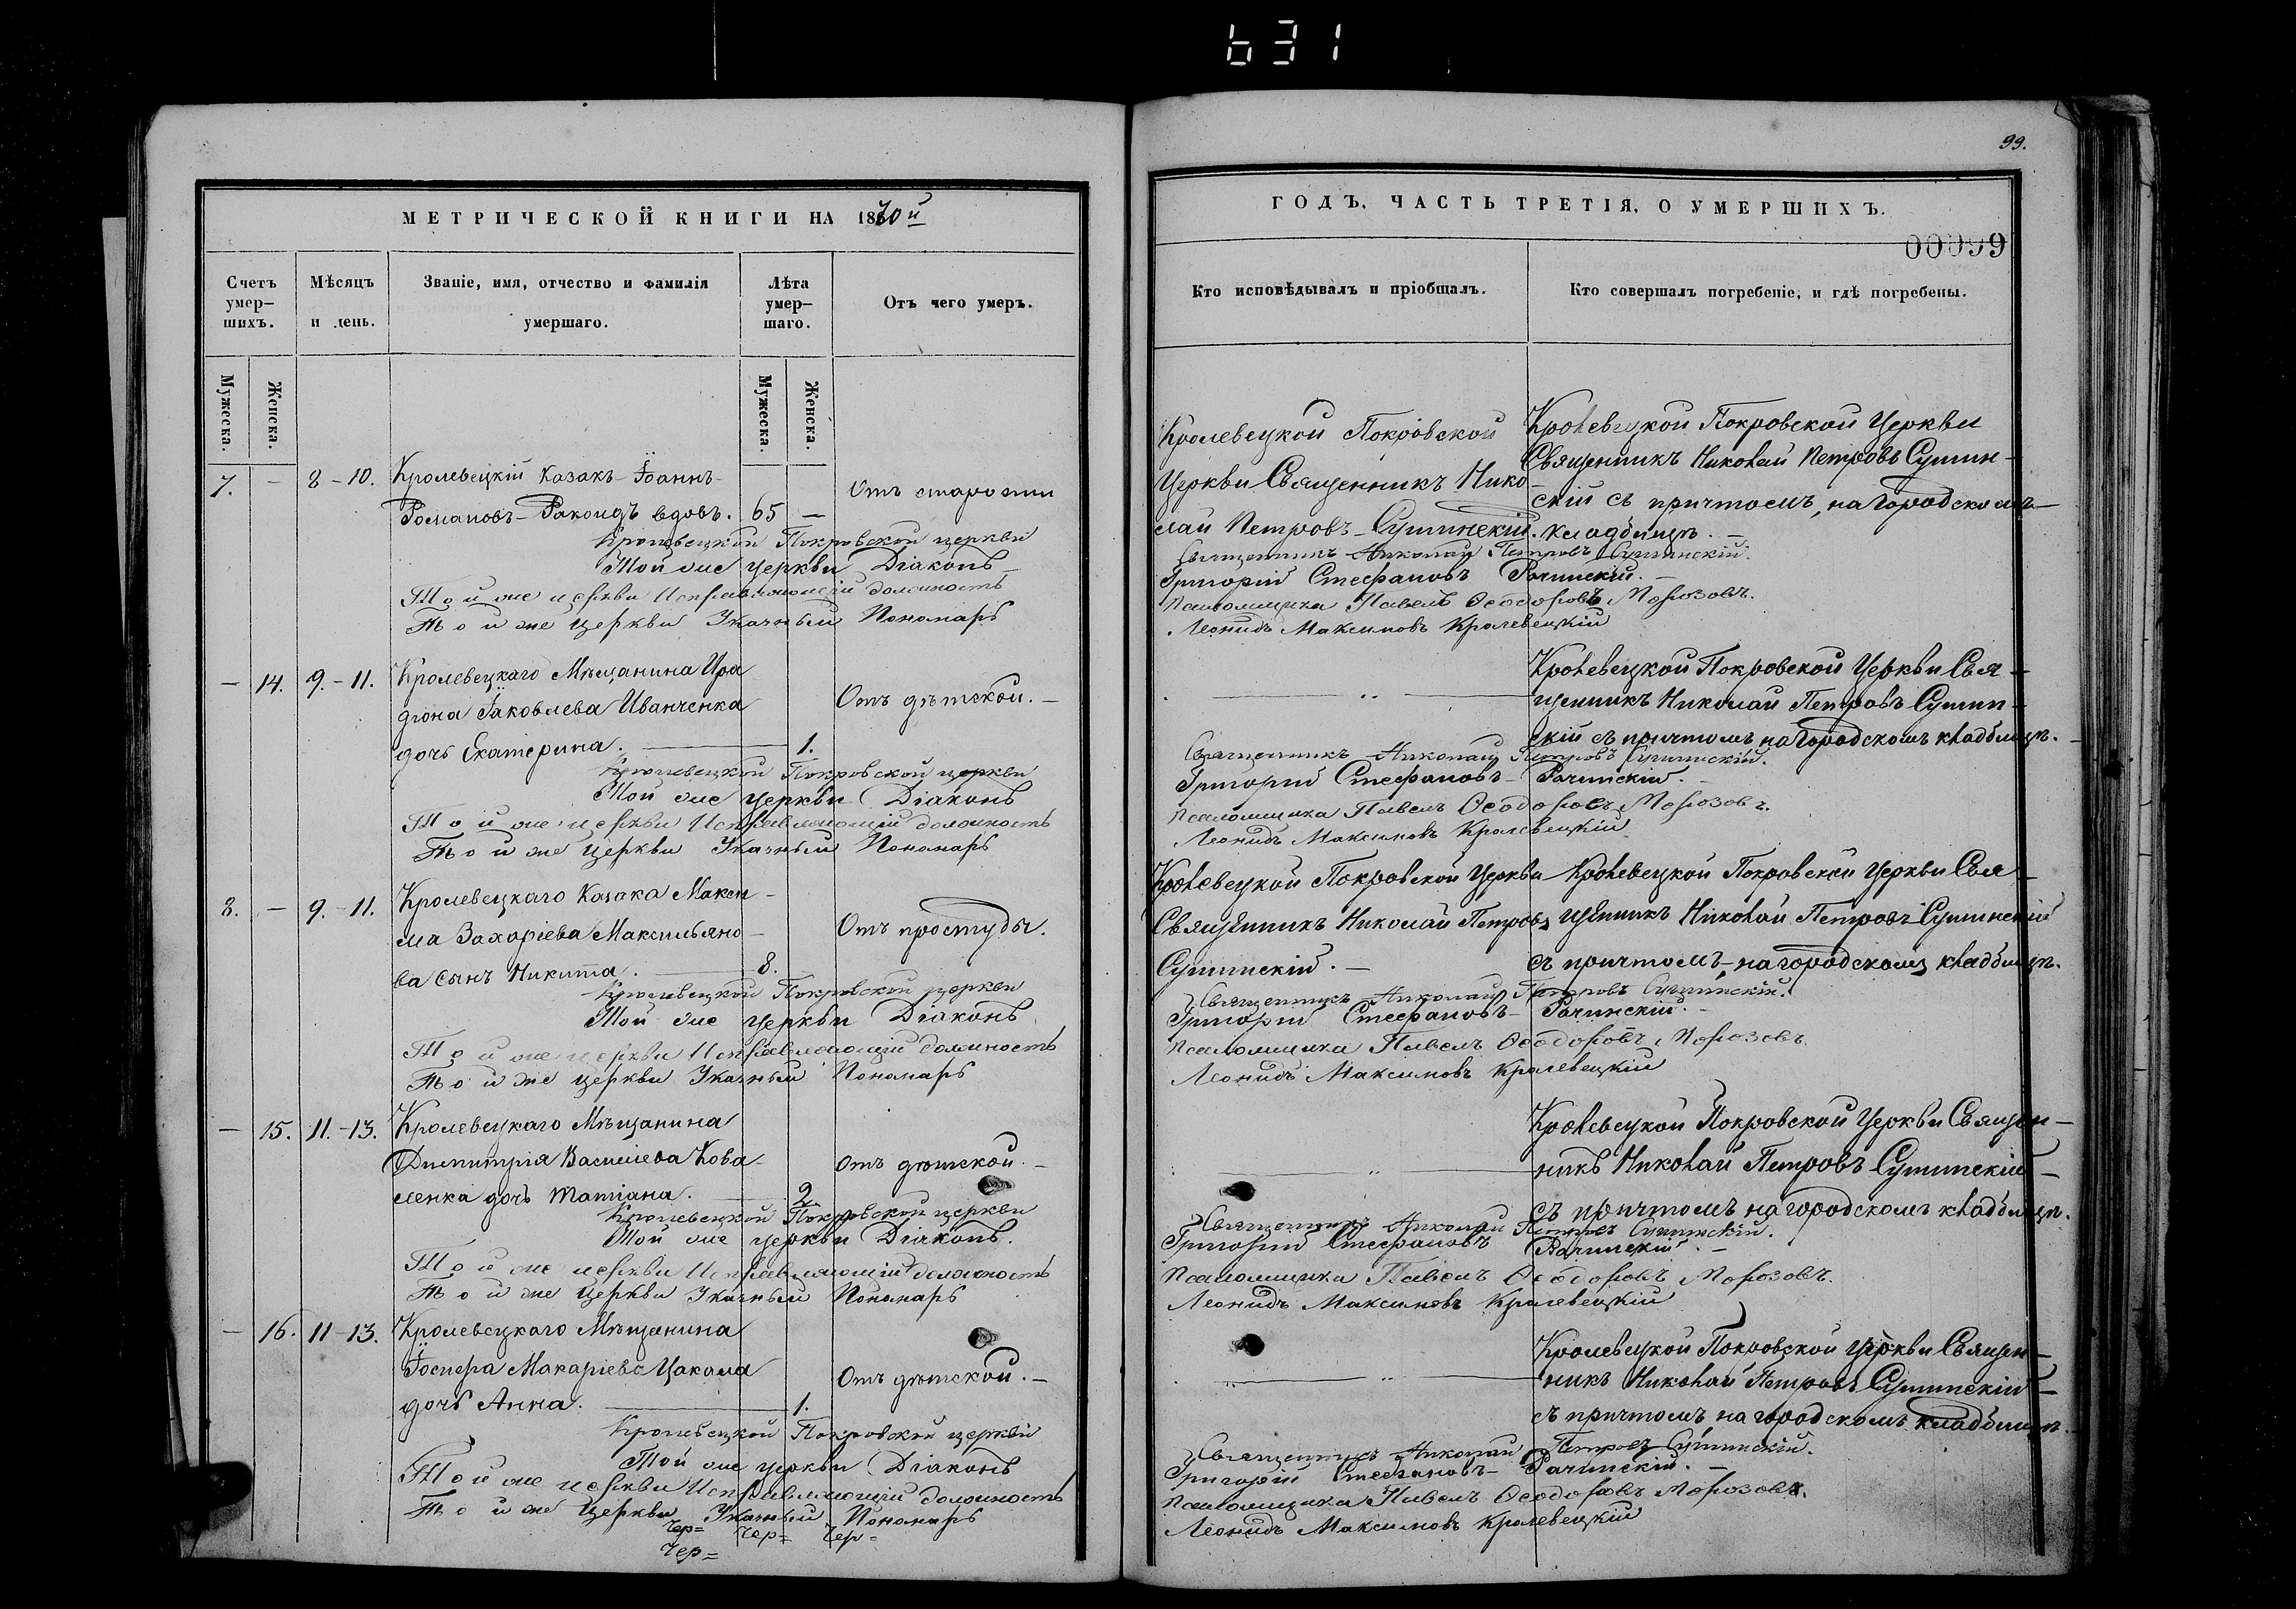 631
МЕТРИЧЕСКОЙ КНИГИ НА 1870й
Счетъ умер-шихъ.
Мѣсяцъ и день.
Званіе, имя, отчество и фамилія умершаго.
Лѣта умер-шаго.
Отъ чего умеръ.
Мужеска.
Женска.
Мужеска.
Женска.
7. — 8-10. Кролевецкій казакъ Іоаннъ
Романовъ Ракоидъ вдовъ. 65 — Отъ старости
Кролевецкой Покровской церкви
Той же церкви Діаконъ
Той же церкви Исправляющій должность
Той же церкви Указный Пономарь
— 14. 9.-11. Кролевецкаго Мѣщанина Ира
діона Іаковлева Иванченка Отъ дѣтской.
дочь Екатерина. 1.
Кролевецкой Покровской церкви
Той же церкви Діаконъ
Той же церкви Исправляющій должность
Той же церкви Указный Пономарь
8. — 9.-11. Кролевецкаго Казака Макси-
ма Захаріева Максимьяно- Отъ простуды.
ва сынъ Никита. 8.
Кролевецкой Покровской церкви
Той же церкви Діаконъ
Той же церкви Исправляющій должность
Той же церкви Указный Пономарь
— 15. 11.-13. Кролевецкаго Мѣщанина
Димитрія Василіева Кова- отъ дѣтской.
ленка дочь Татіана. 2
Кролевецкой Покровской церкви
Той же церкви Діаконъ.
Той же церкви Исправляющій должность
Той же церкви Указный Пономарь
— 16. 11-13. Кролевецкаго Мѣщанина
Іосифа Макаріева Цакала Отъ дѣтской.
дочь Анна. 1.
Кролевецкой Покровской церкви
Той же церкви Діаконъ
Той же церкви Исправляющій должность
Той же церкви Указный Пономарь
Чер= Чер= Чер=
Чер=
99.
ГОДЪ, ЧАСТЬ ТРЕТІЯ, О УМЕРШИХЪ.
00099
Кто исповѣдывалъ и пріобщалъ.
Кто совершалъ погребеніе, и гдѣ погребены.
Кролевецкой Покровской
Церкви Священникъ Нико-
лай Петровъ Сушинскій.
Кролевецкой Покровской Церкви
Священникъ Николай Петровъ Сушин-
скій съ причтомъ, на городскомъ
кладбищѣ.
Священникъ Николай Петровъ Сушинскій.
Григорій Стефановъ Рачинскій.
Псаломщика Павелъ Ѳеодоровъ Морозовъ.
Леонидъ Максимовъ Кролевецкій
Кролевецкой Покровской Церкви Свя-
щенникъ Николай Петровъ Сушин-
скій съ причтомъ на городскомъ кладбищѣ.
Священникъ Николай Петровъ Сушинскій.
Григорій Стефановъ Рачинскій.
Псаломщика Павелъ Ѳеодоровъ Морозовъ.
Леонидъ Максимовъ Кролевецкій
Кролевецкой Покровской Церкви
Священникъ Николай Петровъ
Сушинскій.
Кролевецкой Покровской Церкви Свя-
щенникъ Николай Петровъ Сушинскій
съ причтомъ на городскомъ кладбищѣ.
Священникъ Николай Петровъ Сушинскій.
Григорій Стефановъ Рачинскій.
Псаломщика Павелъ Ѳеодоровъ Морозовъ.
Леонидъ Максимовъ Кролевецкій
Кролевецкой Покровской Церкви Священ-
никъ Николай Петровъ Сушинскій
съ причтомъ на городскомъ кладбищѣ.
Священникъ Николай Петровъ Сушинскій.
Григорій Стефановъ Рачинскій.
Псаломщика Павелъ Ѳеодоровъ Морозовъ.
Леонидъ Максимовъ Кролевецкій
Кролевецкой Покровской Церкви Священ-
никъ Николай Петровъ Сушинскій
съ причтомъ на городскомъ кладбищѣ.
Священникъ Николай Петровъ Сушинскій.
Григорій Стефановъ Рачинскій.
Псаломщика Павелъ Ѳеодоровъ Морозовъ.
Леонидъ Максимовъ Кролевецкій